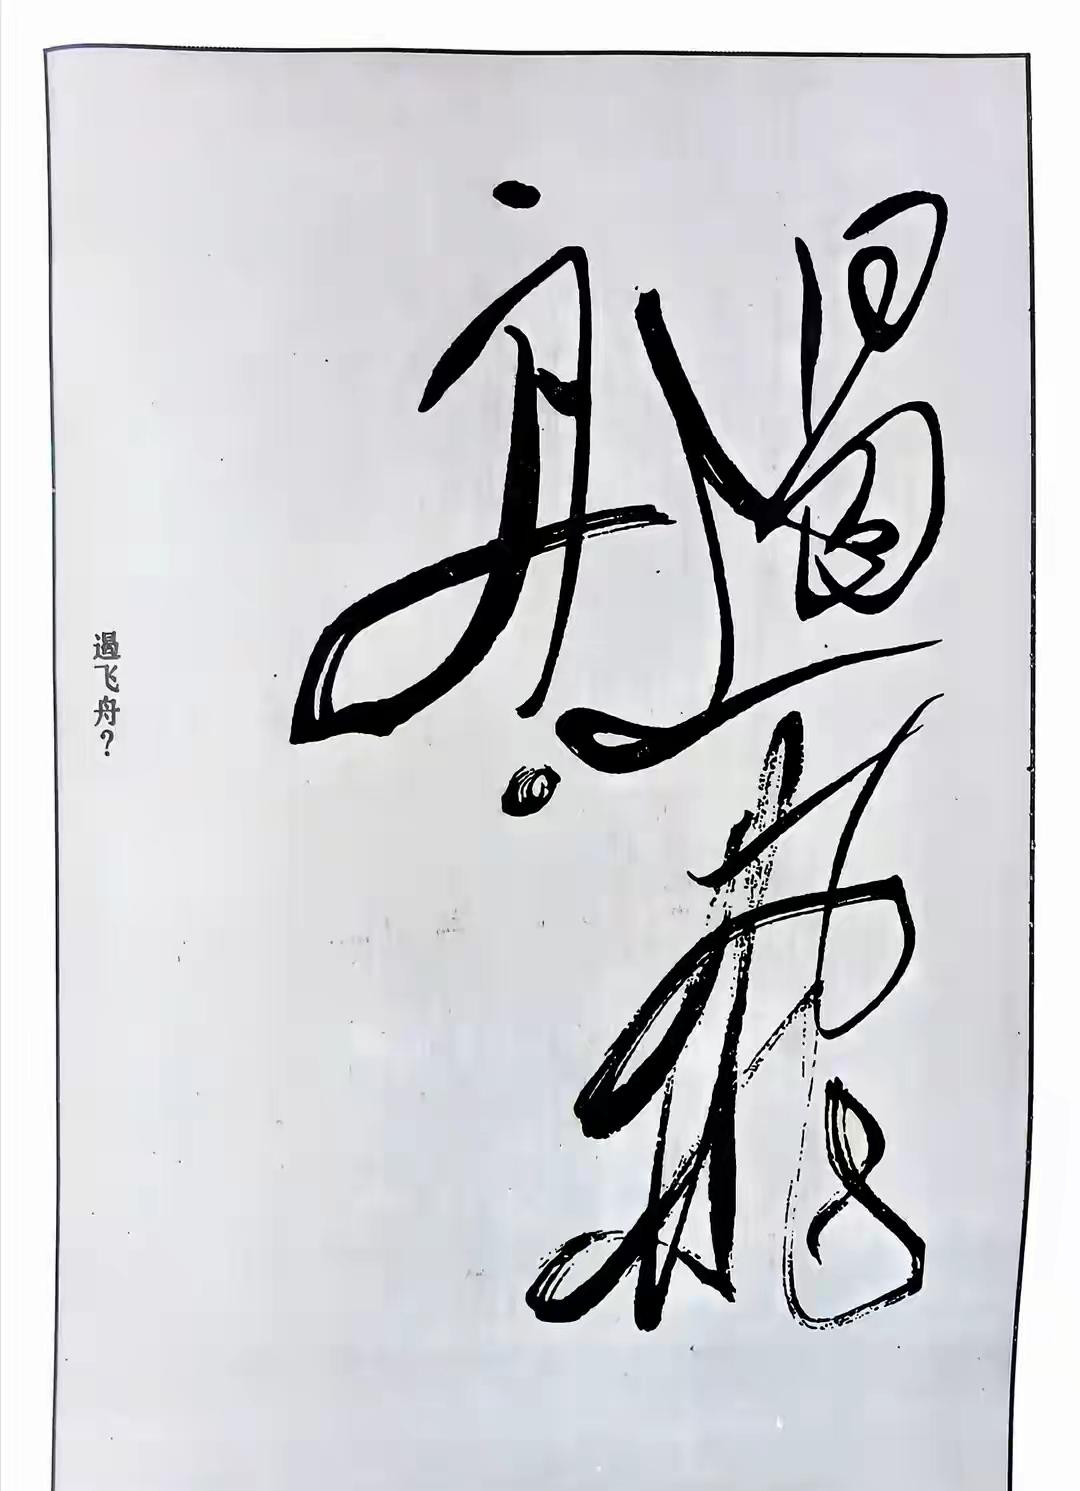 遏飛
舟
遏飞舟？